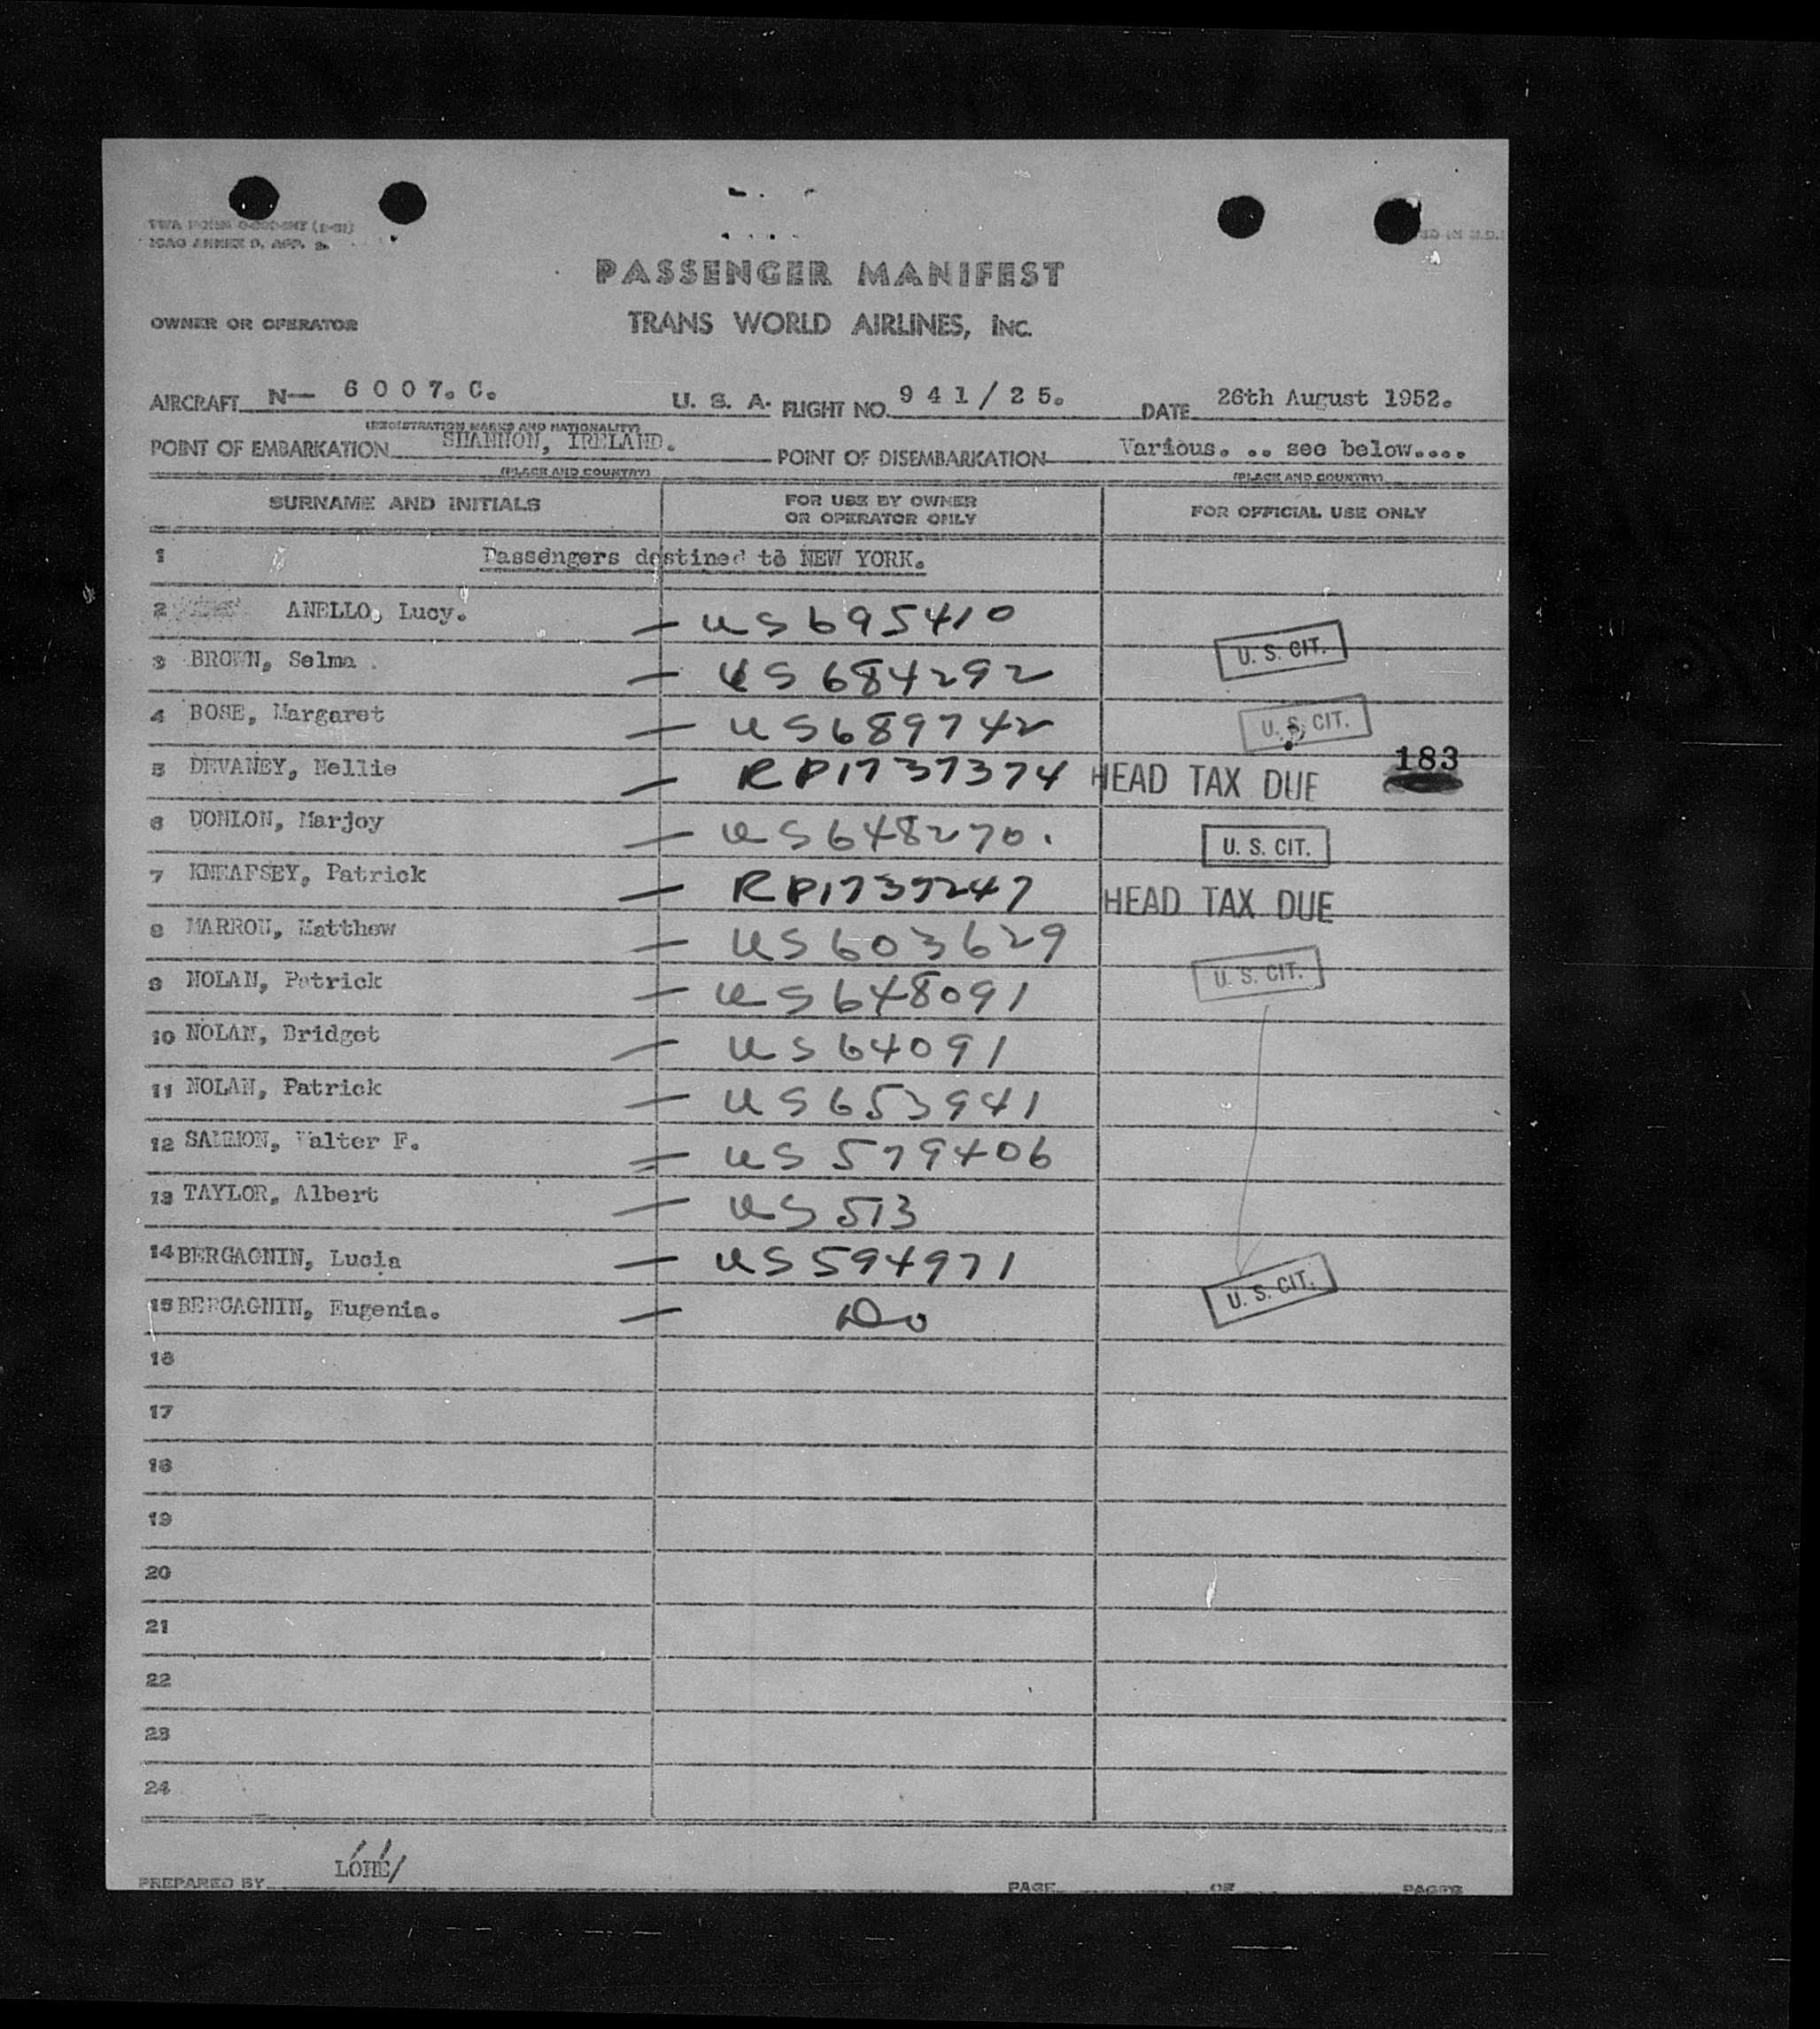 TWA FORM
ICAO ANNEX 9, APP. 2.
PASSENGER MANIFEST
OWNER OR OPERATOR TRANS WORLD AIRLINES, INC.
AIRCRAFT N— 6 0 0 7. C. U. S. A. FLIGHT NO. 9 4 1 / 2 5. DATE 26th August 1952.
(REGISTRATION MARKS AND NATIONALITY)
POINT OF EMBARKATION SHANNON, IRELAND. POINT OF DISEMBARKATION Various. .. see below....
(PLACE AND COUNTRY) (PLACE AND COUNTRY)
SURNAME AND INITIALS FOR USE BY OWNER OR OPERATOR ONLY FOR OFFICIAL USE ONLY
1 Passengers destined to NEW YORK.
2 ANELLO, Lucy. — US 695410
3 BROWN, Selma — US 684292 U. S. CIT.
4 BOSE, Margaret — US 689742 U. S. CIT.
5 DEVANEY, Nellie — RP1737374 HEAD TAX DUE 183
6 DONLON, Marjoy — US 648270. U. S. CIT.
7 KNEAFSEY, Patrick — RP1737247 HEAD TAX DUE
8 MARROU, Matthew — US 603629
9 NOLAN, Patrick — US 648091 U. S. CIT.
10 NOLAN, Bridget — US 64091
11 NOLAN, Patrick — US 653941
12 SAMMON, Walter F. = US 579406
13 TAYLOR, Albert — US 513
14 BERGAGNIN, Lucia — US 594971
15 BERGAGNIN, Eugenia. — Do U. S. CIT.
16
17
18
19
20
21
22
23
24
PREPARED BY PAGE OF PAGES